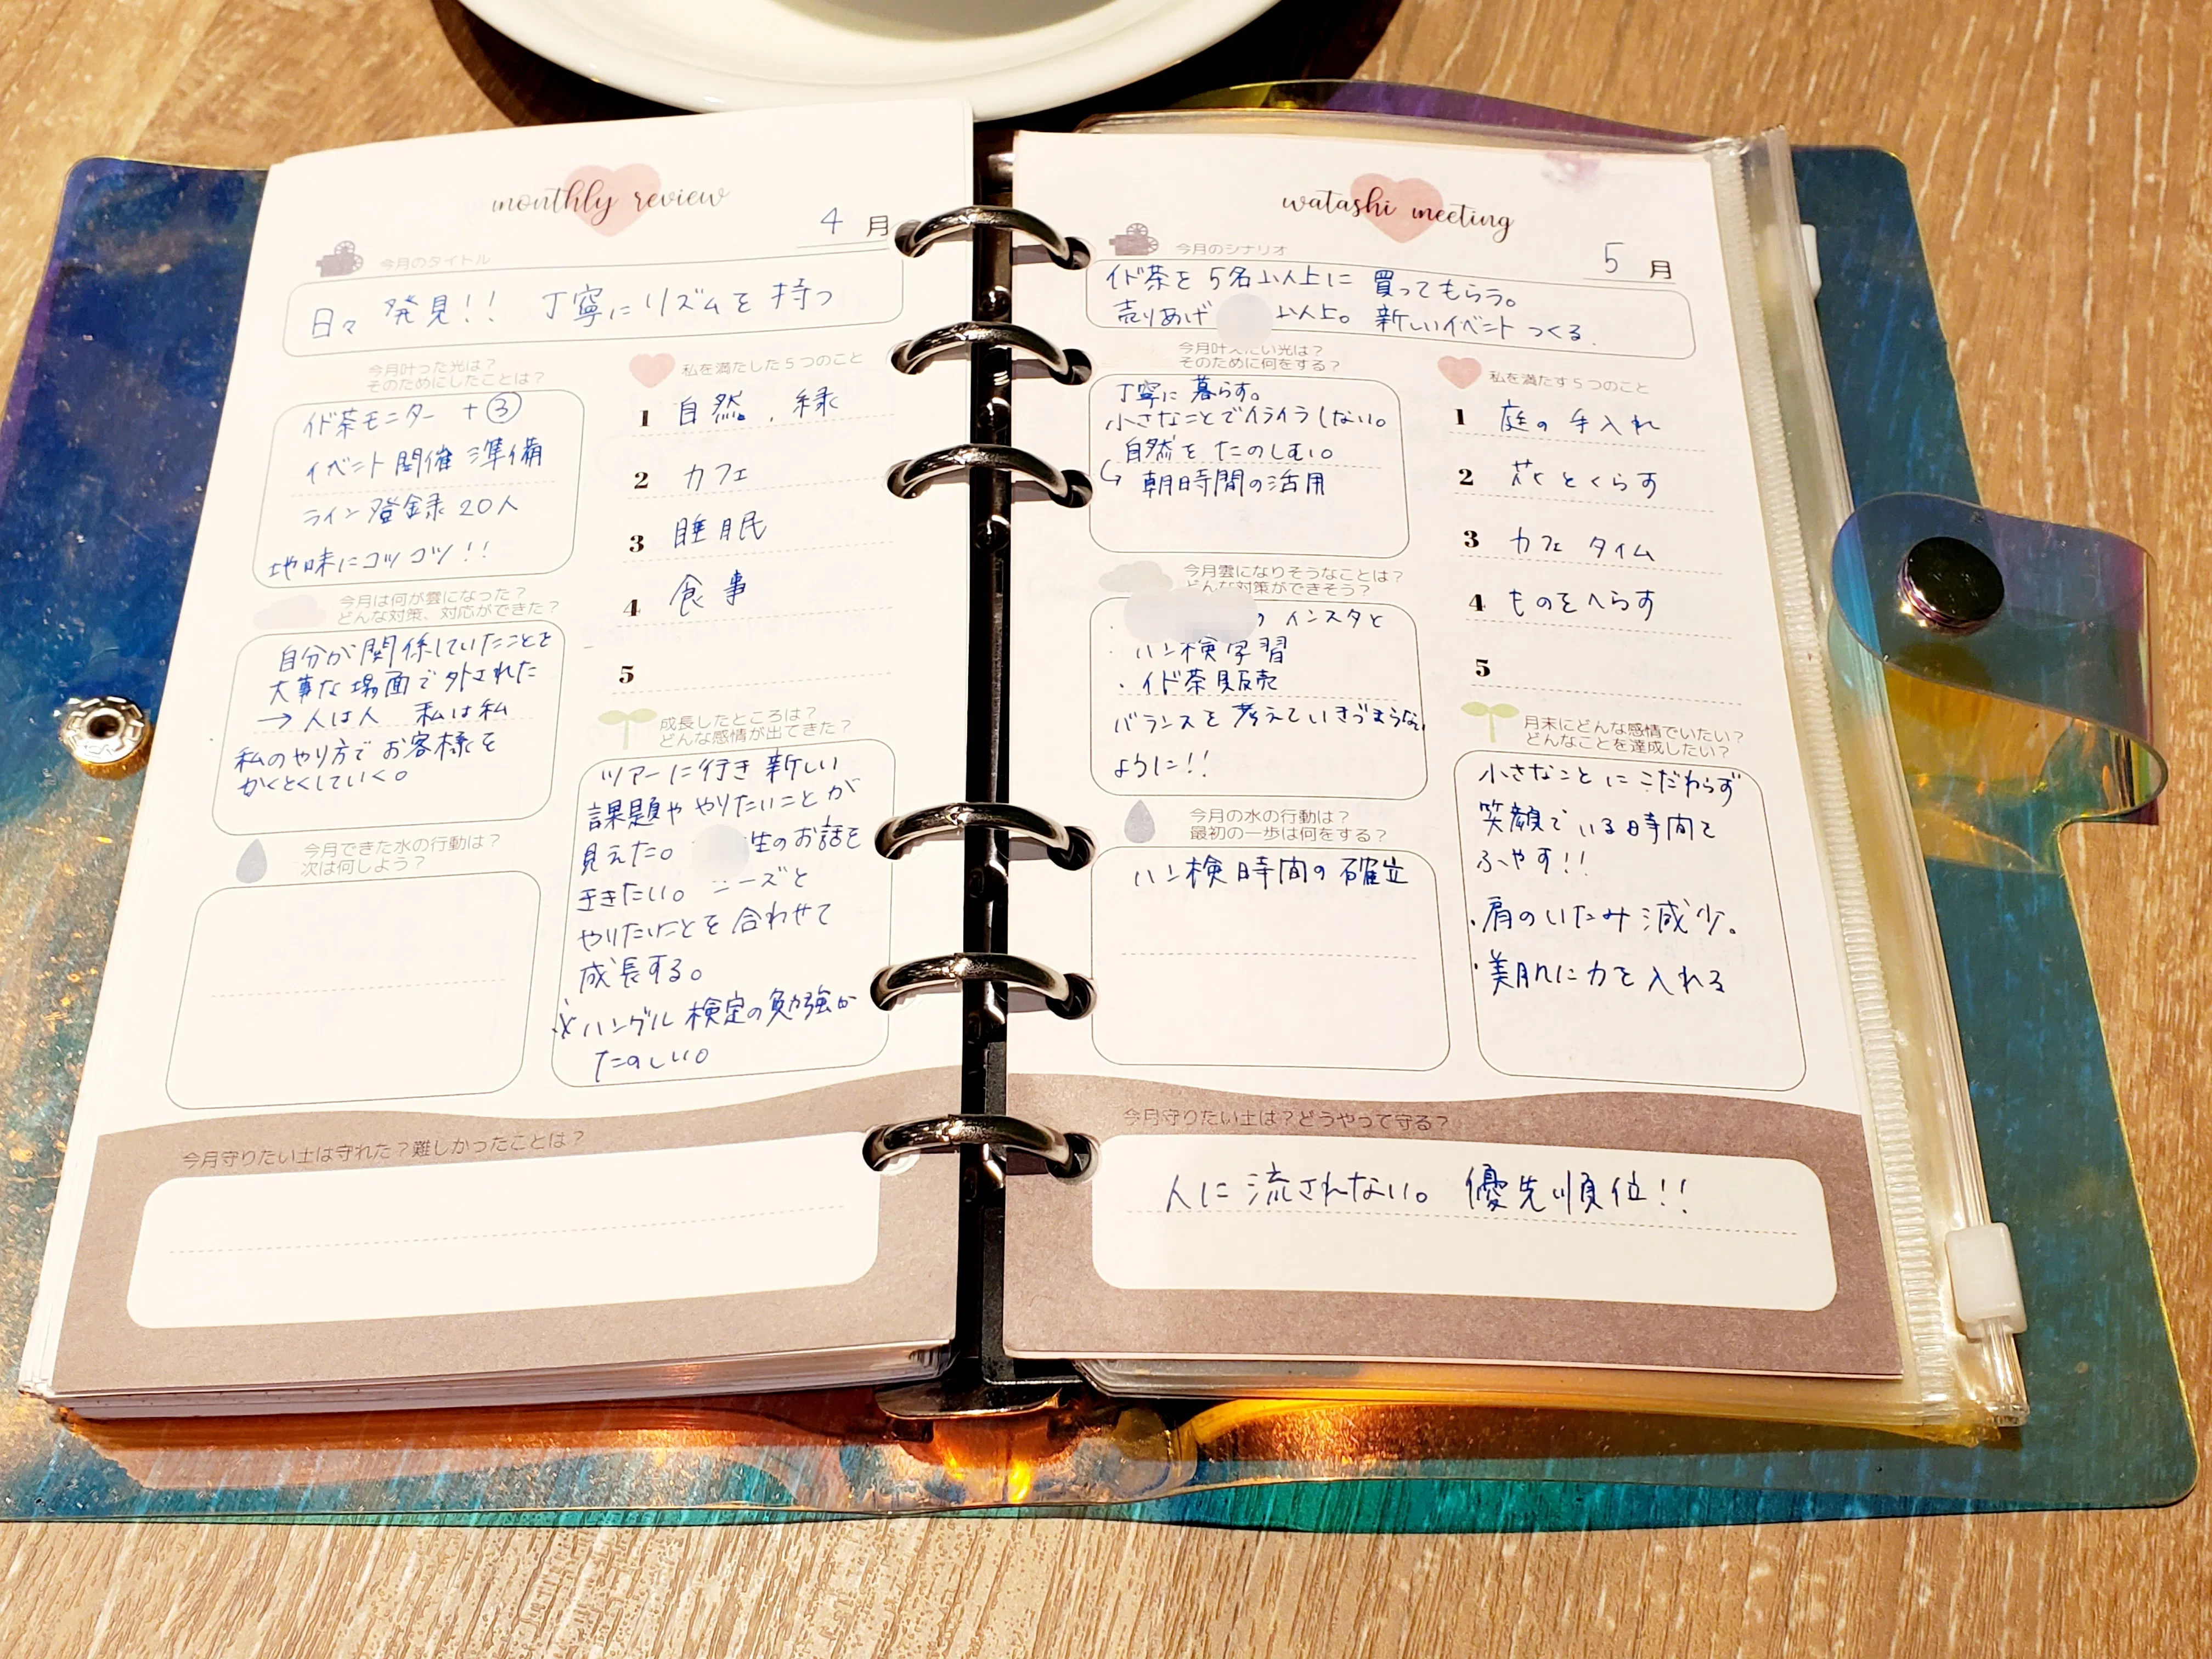 monthly review
4月
今月のタイトル
日々 発見!! 丁寧にリズムを持つ
今月叶った光は?
そのためにしたことは?
イド茶モニター +③
イベント開催準備
ライン登録20人
地味にコツコツ!!
私を満たした5つのこと
1 自然、緑
2 カフェ
3 睡眠
4 食事
5
今月は何が雲になった?
どんな対策、対応ができた?
自分が関係していたことを
大事な場面で外された
→人は人 私は私
私のやり方でお客様を
かくとくしていく。
成長したところは?
どんな感情が出てきた?
ツアーに行き新しい
課題ややりたいことが
見えた。 生のお話を
ききたい。ニーズと
やりたいことを合わせて
成長する。
※ハングル検定の勉強が
たのしい。
今月できた水の行動は?
次は何しよう?
今月守りたい土は守れた?難しかったことは?
watashi meeting
5月
今月のシナリオ
イド茶を5名以上に買ってもらう。
売りあげ 以上。新しいイベントつくる.
今月叶えたい光は?
そのために何をする?
丁寧に暮らす。
小さなことでイライラしない。
自然をたのしむ。
↳ 朝時間の活用
私を満たす5つのこと
1 庭の手入れ
2 花とくらす
3 カフェタイム
4 ものをへらす
5
今月雲になりそうなことは?
どんな対策ができそう?
・ のインスタと
・ハン検学習
・イド茶販売
バランスを考えていきづまらない
ように!!
月末にどんな感情でいたい?
どんなことを達成したい?
小さなことにこだわらず
笑顔でいる時間を
ふやす!!
・肩のいたみ減少。
・美肌に力を入れる
今月の水の行動は?
最初の一歩は何をする?
ハン検時間の確立
今月守りたい土は?どうやって守る?
人に流されない。優先順位!!